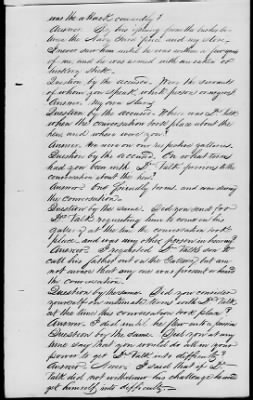 was the attack committed?
Answer. By his going from the bushes be-
tween the Navy Cove fence and my slave.
I never saw him until he was within a few yards
of me, and he was armed with an oaken or
hickory stick.
Question by the accused. Were the servants
of whom you speak, white persons or negroes?
Answer. My own slaves.
Question by the accused. Where was Dr. Talk
when the conversation took place about the
hens, and where were you?
Answer. We were on our respective galleries.
Question by the accused. On what terms
had you been with Dr. Talk previous to the
conversation about the hens?
Answer. On friendly terms, and even during
the conversation.
Question by the same. Did you send for
Dr. Talk requesting him to come on his
gallery at the time the conversation took
place, and was any other person on board?
Answer. I requested Dr. Talk's son to
call his father out on the Gallery but am
not aware that any one was present or heard
the conversation.
Question by the same. Did you consider
yourself on intimate terms with Dr. Talk
at the time this conversation took place?
Answer. I did until he flew into a passion
Question by the same. Did you at any
time say that you would do all in your
power to get Dr. Talk into difficulty?
Answer. Never. I said that if Dr.
Talk did not withdraw his challenge he would
get himself into difficulty.